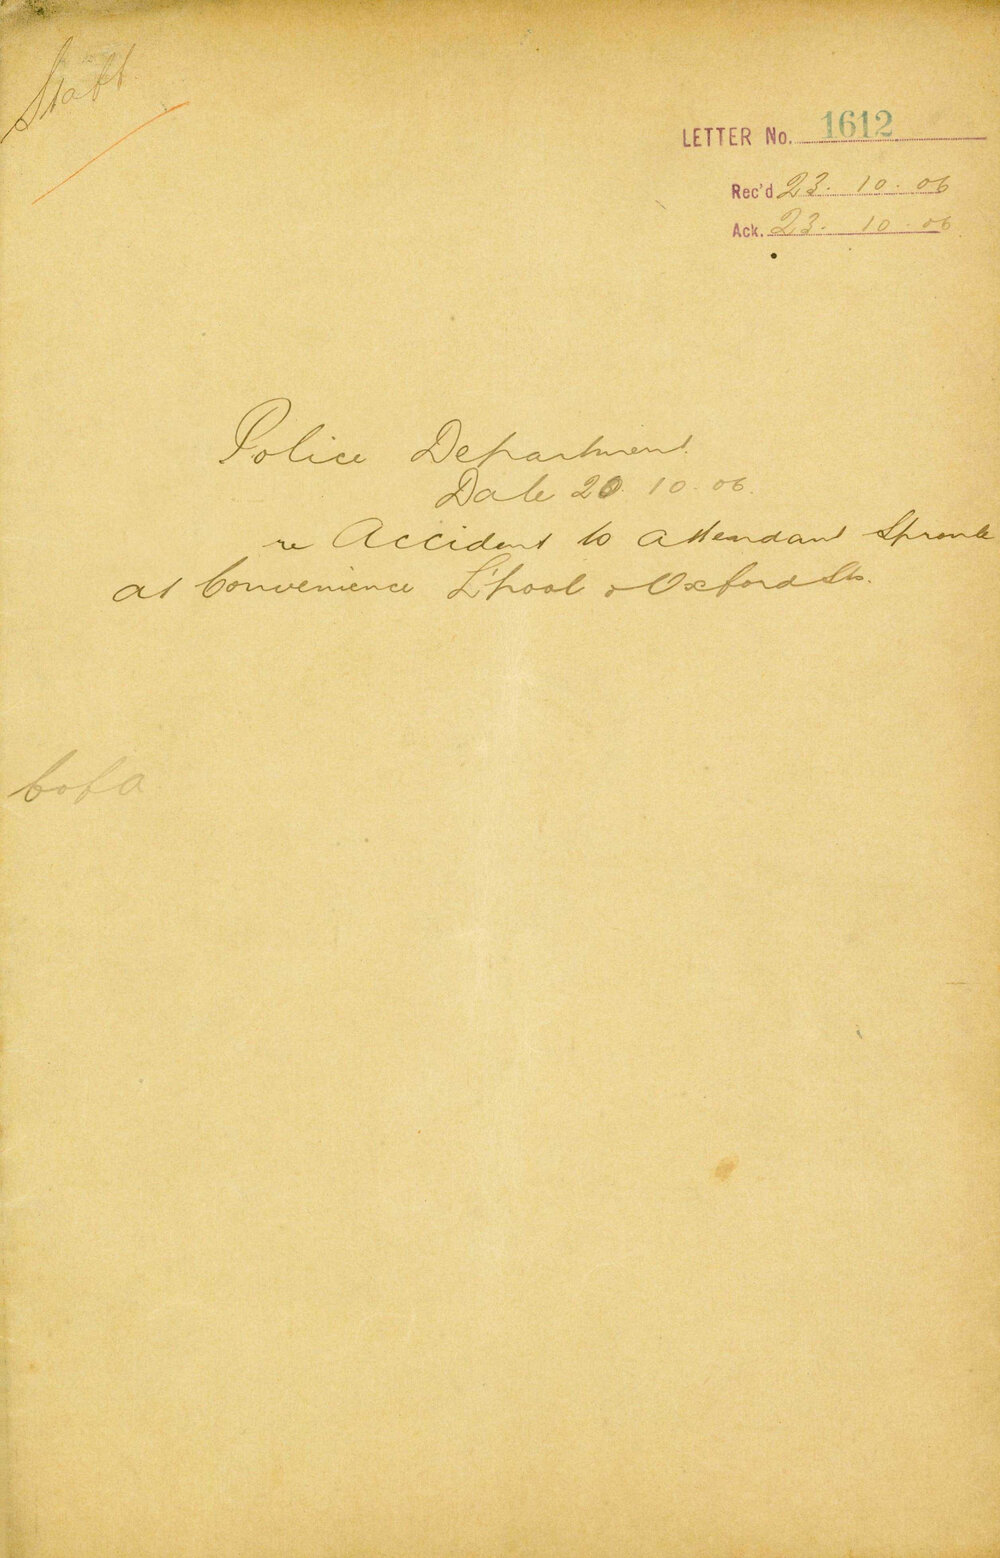 Staff
LETTER No. 1612
Rec'd 23. 10. 06
Ack. 23. 10. 06
Police Department.
Date 20. 10. 06.
re Accident to Attendant
at Convenience L'pool & Oxford Sts.
C of A